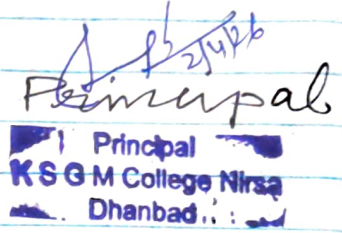 2/4/26
Principal
Principal
K S G M College Nirsa
Dhanbad